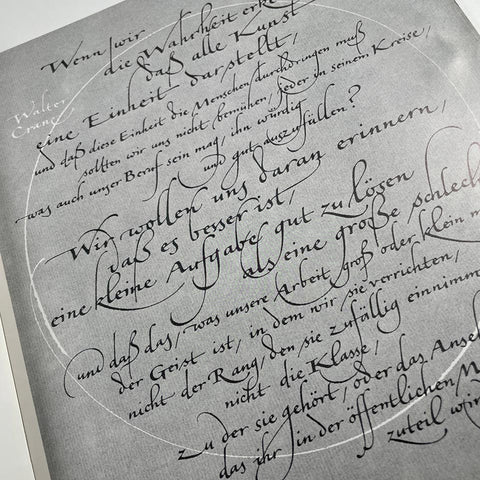 Wenn wir
die Wahrheit erke
daß alle Kunst
eine Einheit darstellt,
und daß diese Einheit die Menschen durchdringen muß
sollten wir uns nicht bemühen, jeder in seinem Kreise,
was auch unser Beruf sein mag, ihn würdig
und gut auszufüllen?
Walter
Crane
Wir wollen uns daran erinnern,
daß es besser ist,
eine kleine Aufgabe gut zu lösen
als eine große schlech
und daß das, was unsere Arbeit groß oder klein m
der Geist ist, in dem wir sie verrichten,
nicht der Rang, den sie zufällig einnimm
nicht die Klasse,
zu der sie gehört, oder das Anse
das ihr in der öffentlichen M
zuteil wir